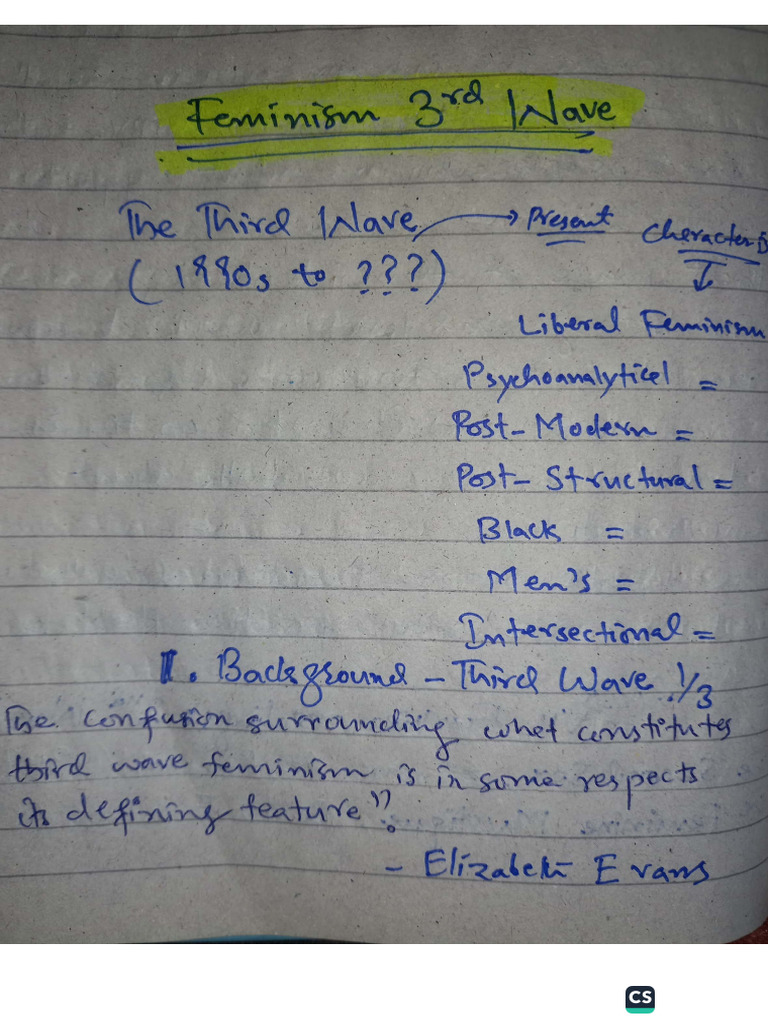 Feminism 3rd Wave
The Third Wave → Present
Characteris
(1990s to ???)
Liberal Feminism
Psychoanalytical =
Post-Modern =
Post-Structural =
Black =
Men's =
Intersectional =
I. Background - Third Wave 1/3
The confusion surrounding what constitutes
third wave feminism is in some respects
its defining feature".
- Elizabeth Evans
CS